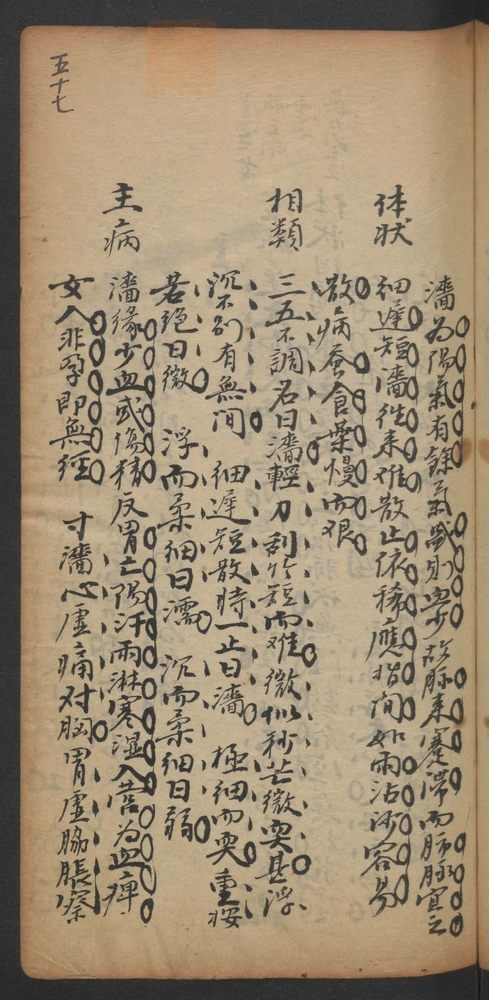 五十七
濇為陽氣有餘氣盛則血少故脉来蹇滞而肺脉宜之
体状
細遲短濇徃来难散止依稀應指间如雨沾沙容易
散病蚕食葉慢而艰
相類
三五不調名曰濇輕刀刮竹短而难微似秒芒微耎甚浮
沉不别有無间 細遲短散時一止曰濇 極細而耎重按
若絕曰微 浮而柔細曰濡 沉而柔細曰弱
主病
濇緣少血或傷精反胃亡陽汗雨淋寒湿入营為血痺
女人非孕即無經 寸濇心虛痛对胸胃虛脇脹察